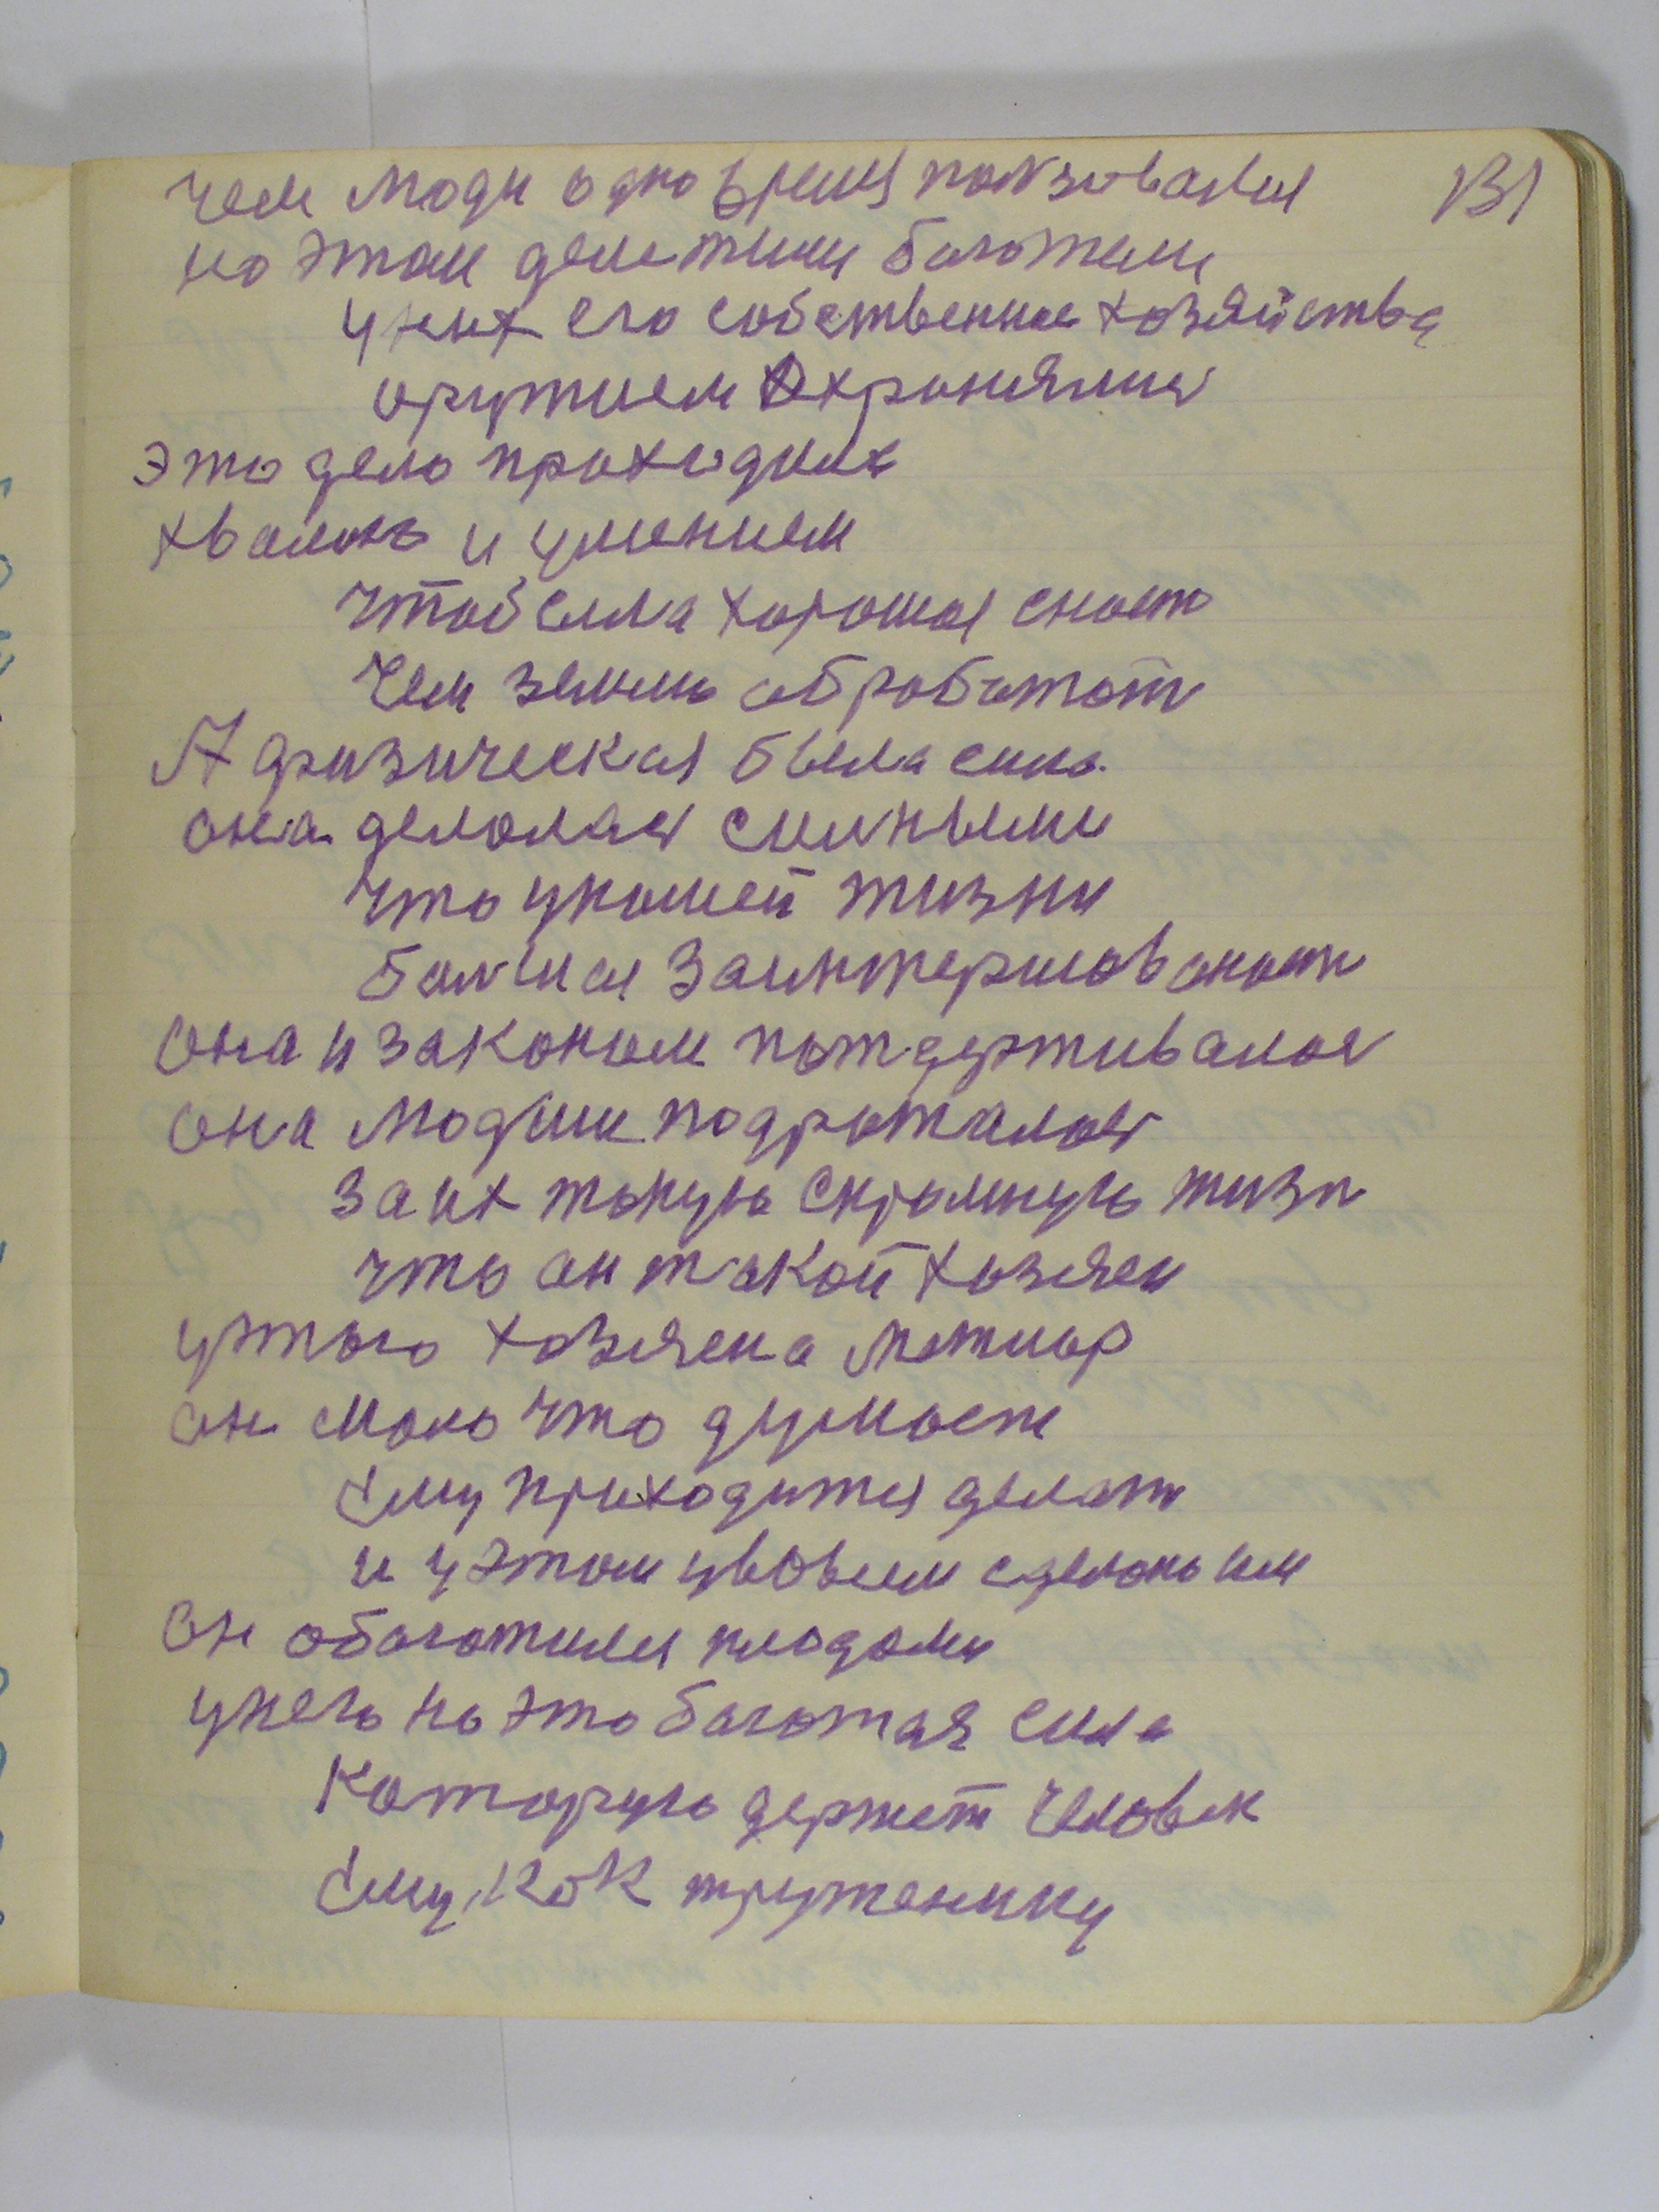 чем люди одно время ползовалися 131
на этом деле жили багатели
у них его собственное хозяйства
оружием Охронялися
это дело приходилос
хвалит и умением
чтоб была хорошая снаст
чем землю обработат
А физическая была сила
она делолас силными
что у нашей жизни
болшая заинтерисованост
она и законом потдерживалас
она людми подрожалас
за их такую скромную жизн
что он такой хозяен
у этого хозяена
он мало что думает
ему приходится делат
и у этом у всьем сделано им
он обагатился плодами
у него на это багатая сила
которую держет человек
ему, как труженику